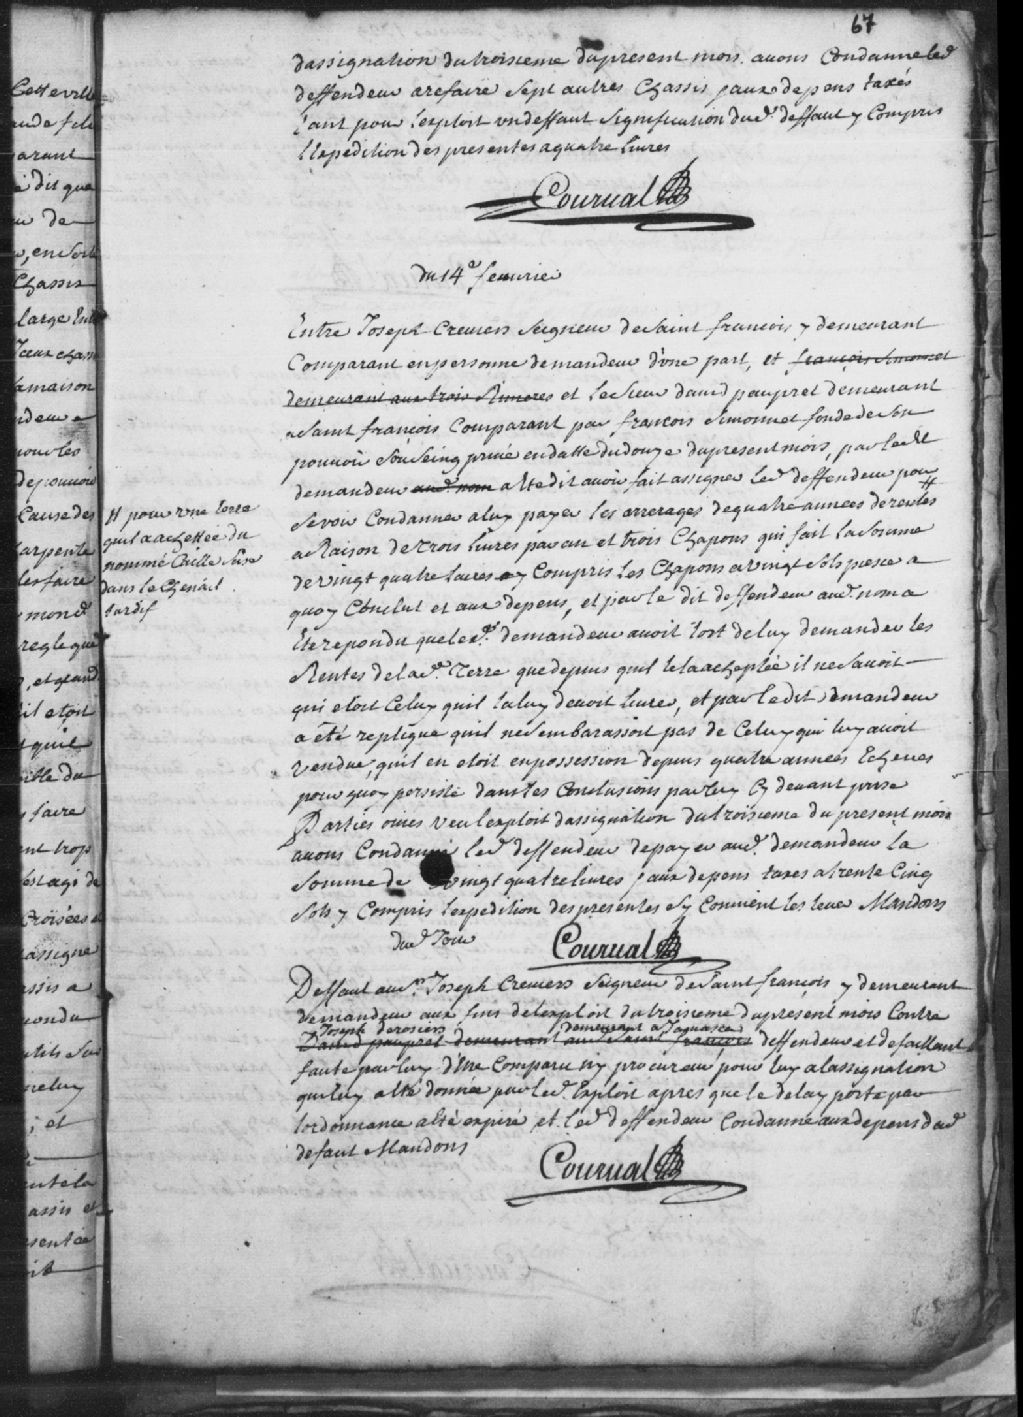 67
dassignation du troisieme du present mois. avons Condanne led
deffendeur a refaire Sept autres Chassis & aux depens taxés
tant pour lexploit un deffaut Signification dud deffaut y Compris
lexpedition des presentes a quatre livres
Courval
du 14e feuvrier
Entre Joseph Crevier Seigneur de Saint francois y demeurant
Comparant en personne demandeur d'une part, et françois Simonnet
demeurant aux trois Rivieres et le Sieur david paupret demeurant
a Saint françois Comparant par françois Simonnet fondé de Son
pouvoir Sous Seing privé en datte du douze du present mois, par ledit
demandeur aud nom a eté dit avoir fait assigner led deffendeur pour
Se voir Condanner a luy payer les arrerages de quatre années de rentes #
a Raison de trois livres par an et trois Chapons qui fait la Somme
de vingt quatre livres y Compris les Chapons a vingt Sols piece a
quoy Conclut et aux depens, et par le dit deffendeur aud nom a
Eté repondu que led demandeur avoit tort de luy demander les
Rentes de lade Terre que depuis quil la acheptée il ne Savoit
qui etoit Celuy quil la luy devoit livrer, et par le dit Demandeur
a été repliqué quil ne Sembarassoit pas de Celuy qui luy avoit
vendue, quil en etoit en possession depuis quatre années Echeues
pourquoy persiste dans les Conclusions par luy Cy devant prise
Parties ouies veu lexploit dassignation du troisieme du present mois
avons Condanné led deffendeur de payer aud demandeur la
Somme de vingt quatre livres & aux depens taxes a trente Cinq
Sols y Compris lexpedition des presentes Mandons
# pour une terre
quil a achettée du
nommé Caille Size
dans le Chenail
tardif
Courval
Deffaut au Sr. Joseph Crevier Seigneur de Saint françois y demeurant
demandeur aux fins de lexploit du troisieme du present mois Contre
Joseph derosiers demeurant a
David paupret demeurant aud Saint françois deffendeur et defaillant
faute par luy d'Etre Comparu ny procureur pour luy a lassignation
qui luy a eté donnée par led Exploit apres que le delay porté par
lordonnance a eté expiré et led deffendeur Condanné aux depens dud
defaut Mandons
Courval
Cette ville
arant
é dit que
de
Chassis
large
maison
pour les
de pouvoir
Cause des
arpente
les faire
regle que
, et grand
il etoit
quil
faire
nt trop
Croisées
assigne
assis a
et
assis et